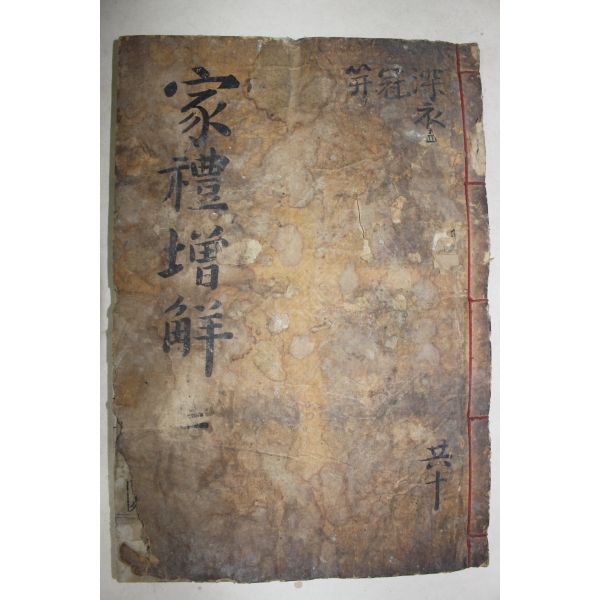 深衣
冠
笄
家禮增觧 二
共十